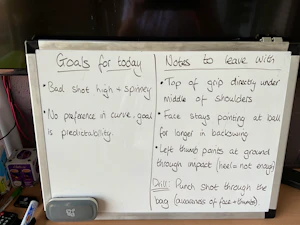 Goals for today
• Bad shot high + spinney
No preference in curve, goal
is predictability.
Notes to leave with
• Top of grip directly under
middle of shoulders
• Face stays pointing at ball
for longer in backswing
• Left thumb points at ground
through impact (heel = not enough)
Drill: Punch shot through the
bag (awareness of face + thumbs)